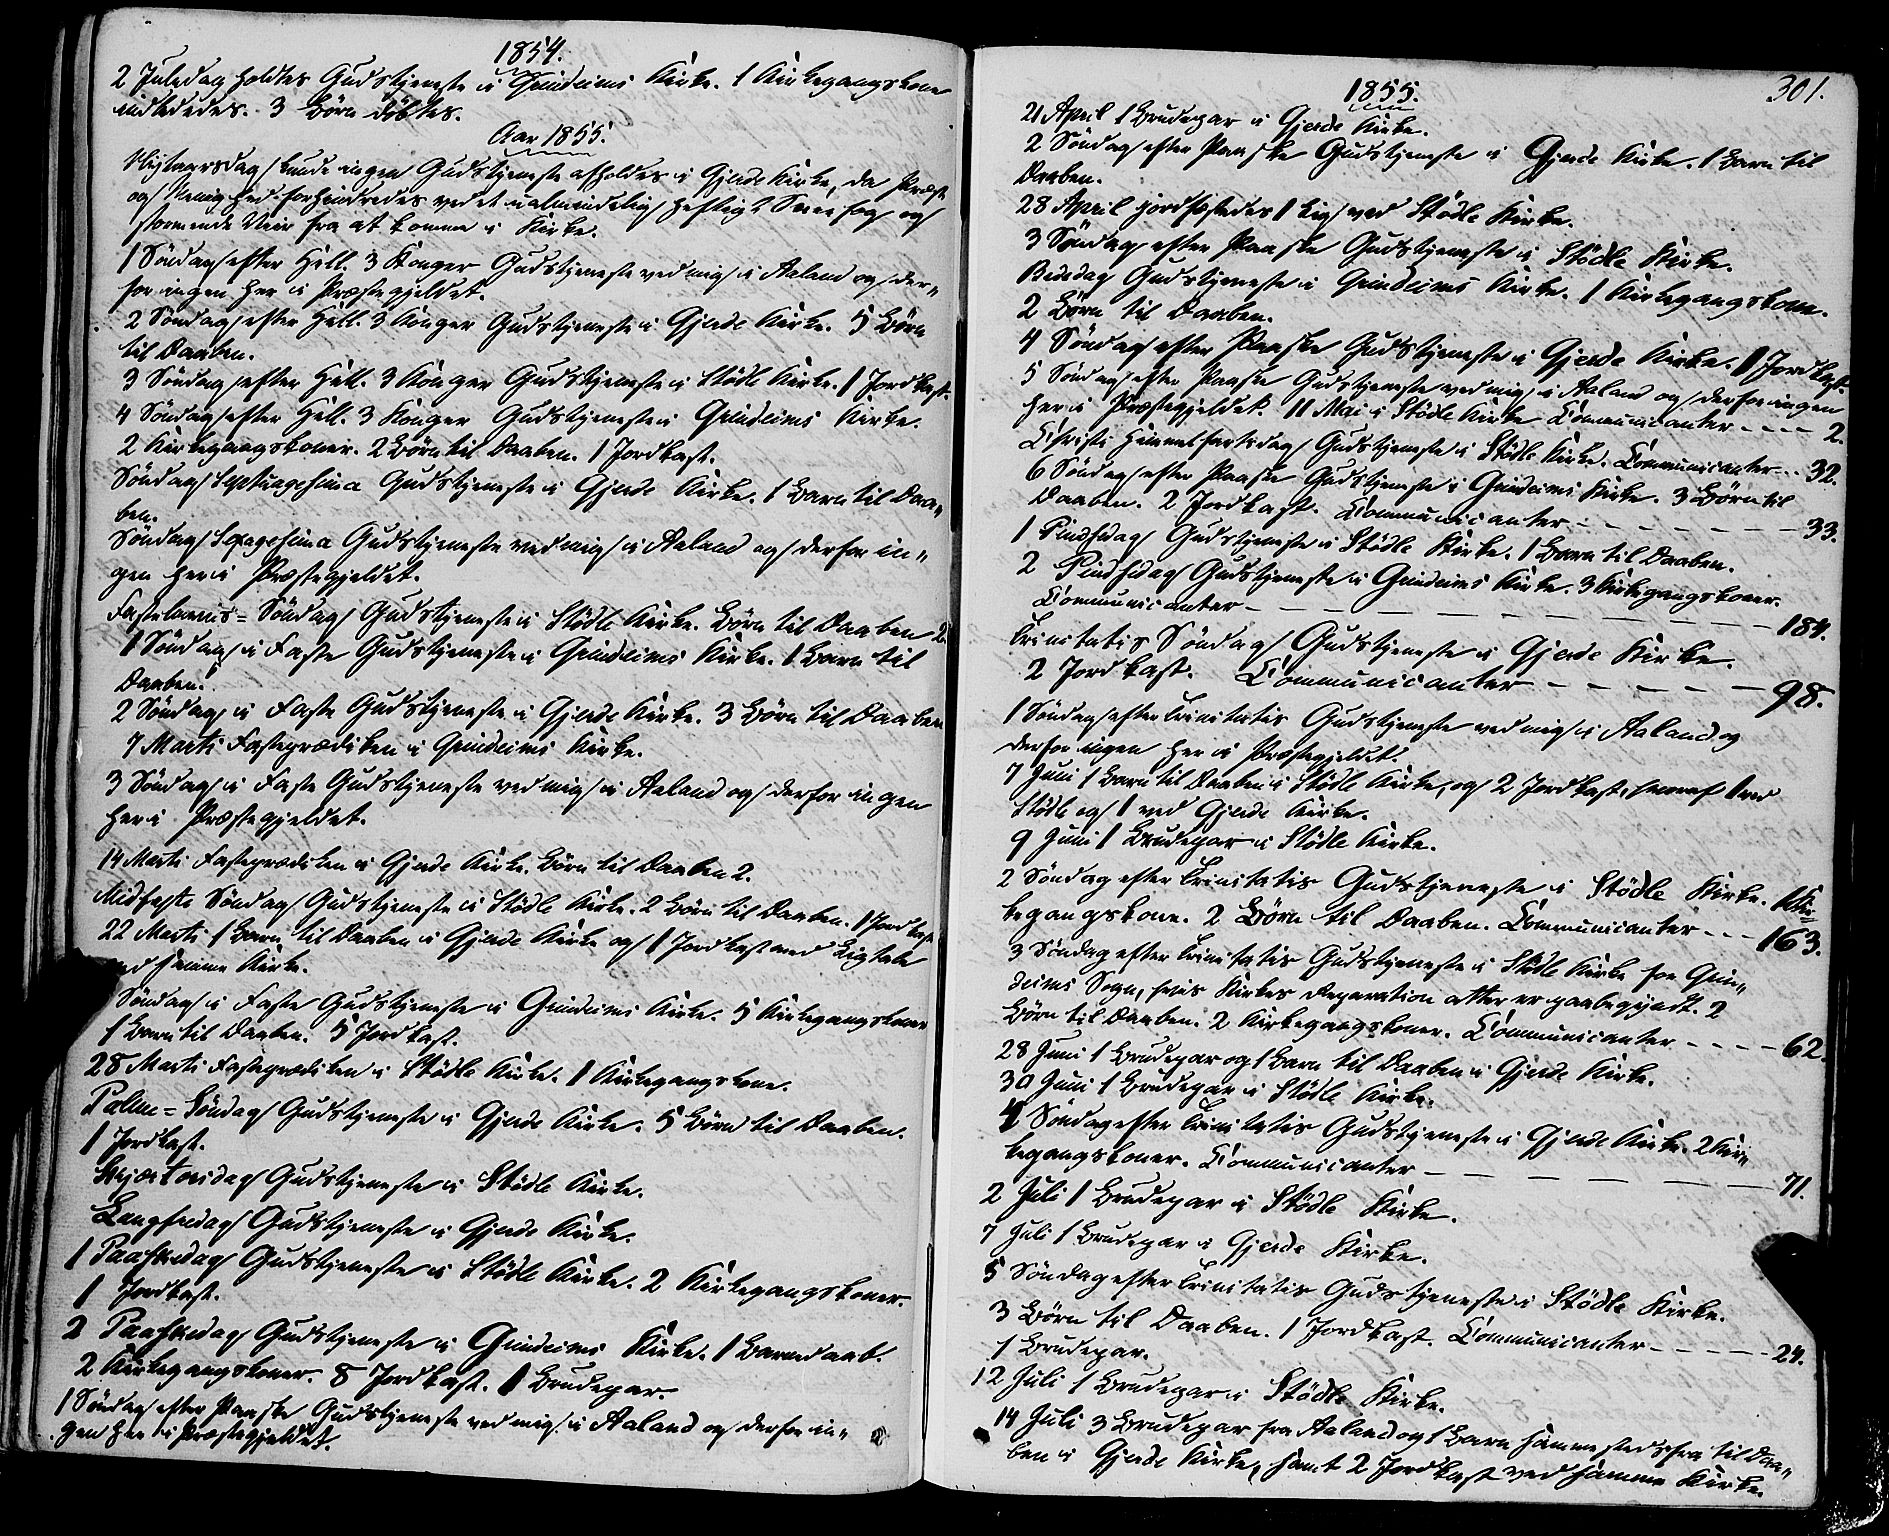 1854.
2 Juledag holdtes Gudstjeneste i Grindeims Kirke. 1 Kirkegangskone
indlededes. 3 Børn døbtes.
Aar 1855.
Nÿtaarsdag kunde ingen Gudstjeneste afholdes i Gjerde Kirke, da Præst
og Menighed forhindredes ved et ualmindelig heftigt Sneefog og
stormende Veir fra at komme i Kirke.
1 Søndag efter Hell. 3 Konger Gudstjeneste ved mig i Aaland og der„
for ingen her i Præstegjeldet.
2 Søndag efter Hell. 3 Konger Gudstjeneste i Gjerde Kirke. 5 Børn
til Daaben.
3 Søndag efter Hell. 3 Konger Gudstjeneste i Stødle Kirke. 1 Jordkast.
4 Søndag efter Hell. 3 Konger Gudstjeneste i Grindeims Kirke.
2 Kirkegangskoner. 2 Børn til Daaben. 1 Jordkast.
Søndag Septuagesima Gudstjeneste i Gjerde Kirke. 1 Barn til Daa„
ben.
Søndag Sexagesima Gudstjeneste ved mig i Aaland og derfor in„
gen her i Præstegjeldet.
Fastelavns= Søndag Gudstjeneste i Stødle Kirke. Børn til Daaben 2.
1 Søndag i Faste Gudstjeneste i Grindeims Kirke. 1 Barn til
Daaben.
2 Søndag i Faste Gudstjeneste i Gjerde Kirke. 3 Børn til Daaben
7 Marts Fasteprædiken i Grindeims Kirke.
3 Søndag i Faste Gudstjeneste ved mig i Aaland og derfor ingen
her i Præstegjeldet.
14 Marts Fasteprædiken i Gjerde Kirke. Børn til Daaben 2.
Midfaste Søndag Gudstjeneste i Stødle Kirke. 2 Børn til Daaben. 1 Jordkast
22 Marts 1 Barn til Daaben i Gjerde Kirke og 1 Jordkast med Ligtale
ved samme Kirke.
Søndag i Faste Gudstjeneste i Grindeims Kirke. 5 Kirkegangskoner
1 Barn til Daaben. 5 Jordkast.
28 Marts Fasteprædiken i Stødle Kirke. 1 Kirkegangskone.
Palme= Søndag Gudstjeneste i Gjerde Kirke. 5 Børn til Daaben.
1 Jordkast.
Skjærtorsdag Gudstjeneste i Stødle Kirke.
Langfredag Gudstjeneste i Gjerde Kirke.
1 Paaskedag Gudstjeneste i Stødle Kirke. 2 Kirkegangskoner.
1 Jordkast.
2 Paaskedag Gudstjeneste i Grindeims Kirke. 1 Barnedaab.
2 Kirkegangskoner. 8 Jordkast. 1 Brudepar.
1 Søndag efter Paaske Gudstjeneste ved mig i Aaland og derfor in„
gen her i Præstegjeldet.
301.
1855.
21 April 1 Brudepar i Gjerde Kirke.
2 Søndag efter Paaske Gudstjeneste i Gjerde Kirke. 1 Barn til
Daaben.
28 April jordfæstedes 1 Lig ved Stødle Kirke.
3 Søndag efter Paaske Gudstjeneste i Stødle Kirke.
Bededag Gudstjeneste i Grindeims Kirke. 1 Kirkegangskone.
2 Børn til Daaben.
4 Søndag efter Paaske Gudstjeneste i Gjerde Kirke. 1 Jordkast.
5 Søndag efter Paaske Gudstjeneste ved mig i Aaland og derfor ingen
her i Præstegjeldet. 11 Mai i Stødle Kirke Communicanter - - - - 2.
Christi Himmelfartsdag Gudstjeneste i Stødle Kirke. Communicanter - . 32.
6 Søndag efter Paaske Gudstjeneste i Grindeims Kirke. 3 Børn til
Daaben. 2 Jordkast. Communicanter - - - - - - - 33.
1 Pindsedag Gudstjeneste i Stødle Kirke. 1 Barn til Daaben.
2 Pindsedag Gudstjeneste i Grindeims Kirke. 3 Kirkegangskoner.
Communicanter - - - - - - - - - - - 184.
Trinitatis Søndag Gudstjeneste i Gjerde Kirke.
2 Jordkast. Communicanter - - - - - - 98.
1 Søndag efter Trinitatis Gudstjeneste ved mig i Aaland og
derfor ingen her i Præstegjeldet.
7 Juni 1 Barn til Daaben i Stødle Kirke, og 2 Jordkast, hvoraf 1 ved
Stødle og 1 ved Gjerde Kirke.
9 Juni 1 Brudepar i Stødle Kirke.
2 Søndag efter Trinitatis Gudstjeneste i Stødle Kirke. 1 Kir=
kegangskone. 2 Børn til Daaben. Communicanter - - - 163.
3 Søndag efter Trinitatis Gudstjeneste i Stødle Kirke for Grin„
deims Sogn, hvis Kirkes Reparation atter er paabegyndt. 2
Børn til Daaben. 2 Kirkegangskoner. Communicanter - - - - 62.
28 Juni 1 Brudepar og 1 Barn til Daaben i Gjerde Kirke.
30 Juni 1 Brudepar i Stødle Kirke.
4 Søndag efter Trinitatis Gudstjeneste i Gjerde Kirke. 2 Kir„
kegangskoner. Communicanter - - - - - - - - 71.
2 Juli 1 Brudepar i Stødle Kirke.
7 Juli 1 Brudepar i Gjerde Kirke.
5 Søndag efter Trinitatis Gudstjeneste i Stødle Kirke.
3 Børn til Daaben. 1 Jordkast. Communicanter - - - - - 24.
1 Brudepar.
12 Juli 1 Brudepar i Stødle Kirke.
14 Juli 3 Brudepar fra Aaland og 1 Barn sammestedsfra til Daa„
ben i Gjerde Kirke, samt 2 Jordkast ved samme Kirke.